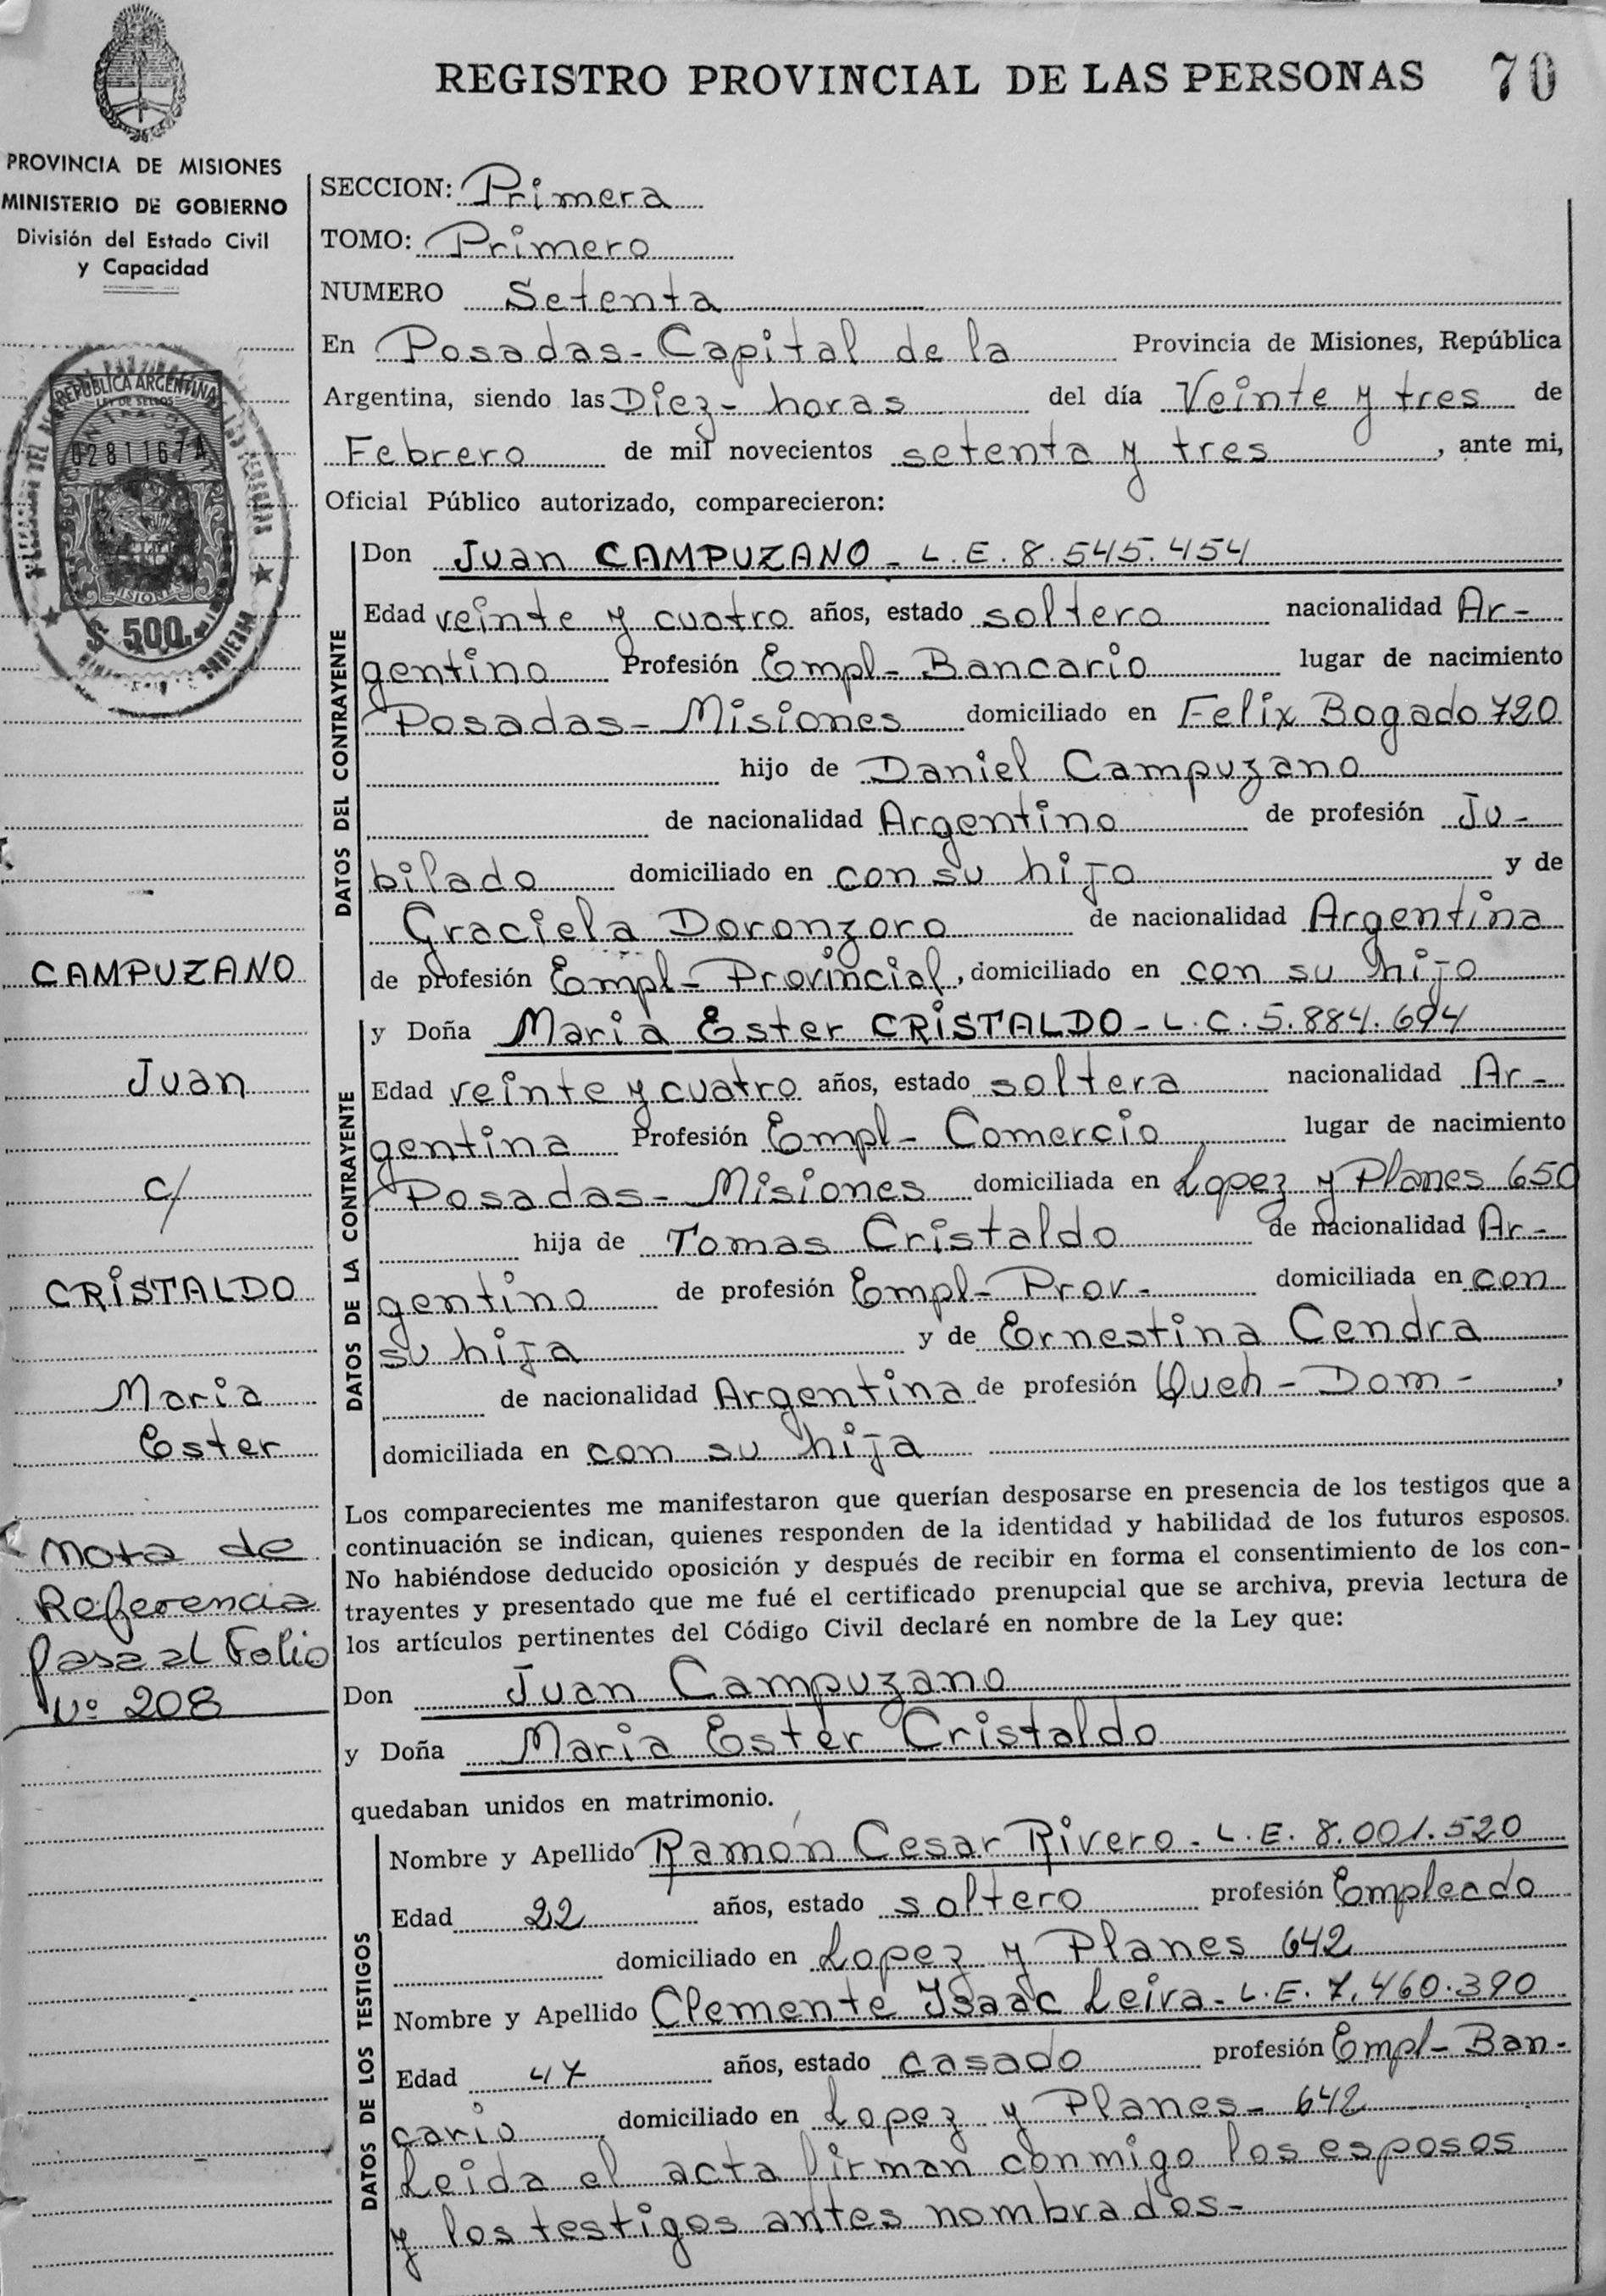 REGISTRO PROVINCIAL DE LAS PERSONAS 70
PROVINCIA DE MISIONES
MINISTERIO DE GOBIERNO
División del Estado Civil
y Capacidad
REPUBLICA ARGENTINA
LEY DE SELLOS
0281167A
MISIONES
$ 500.
CAMPUZANO
Juan
c/
CRISTALDO
Maria
Ester
Nota de
Referencia
pasa al Folio
Nº 208
SECCION: Primera
TOMO: Primero
NUMERO Setenta
En Posadas - Capital de la Provincia de Misiones, República
Argentina, siendo las Diez - horas del día Veinte y tres de
Febrero de mil novecientos setenta y tres, ante mi,
Oficial Público autorizado, comparecieron:
DATOS DEL CONTRAYENTE
Don Juan CAMPUZANO - L.E. 8.545.454
Edad veinte y cuatro años, estado soltero nacionalidad Ar-
gentino Profesión Empl - Bancario lugar de nacimiento
Posadas - Misiones domiciliado en Felix Bogado 720
hijo de Daniel Campuzano
de nacionalidad Argentino de profesión Ju-
bilado domiciliado en con su hijo y de
Graciela Doronzoro de nacionalidad Argentina
de profesión Empl - Provincial, domiciliado en con su hijo
DATOS DE LA CONTRAYENTE
y Doña Maria Ester CRISTALDO - L.C. 5.884.694
Edad veinte y cuatro años, estado soltera nacionalidad Ar-
gentina Profesión Empl - Comercio lugar de nacimiento
Posadas - Misiones domiciliada en Lopez y Planes 650
hija de Tomas Cristaldo de nacionalidad Ar-
gentino de profesión Empl - Prov - domiciliada en con
su hija y de Ernestina Cendra
de nacionalidad Argentina de profesión Queh - Dom -,
domiciliada en con su hija
Los comparecientes me manifestaron que querían desposarse en presencia de los testigos que a
continuación se indican, quienes responden de la identidad y habilidad de los futuros esposos.
No habiéndose deducido oposición y después de recibir en forma el consentimiento de los con-
trayentes y presentado que me fué el certificado prenupcial que se archiva, previa lectura de
los artículos pertinentes del Código Civil declaré en nombre de la Ley que:
Don Juan Campuzano
y Doña Maria Ester Cristaldo
quedaban unidos en matrimonio.
DATOS DE LOS TESTIGOS
Nombre y Apellido Ramón Cesar Rivero - L.E. 8.001.520
Edad 22 años, estado soltero profesión Empleado
domiciliado en Lopez y Planes 642
Nombre y Apellido Clemente Isaac Leiva - L.E. 7.460.390
Edad 47 años, estado casado profesión Empl - Ban-
cario domiciliado en Lopez y Planes - 642
Leida el acta firman conmigo los esposos
y los testigos antes nombrados -